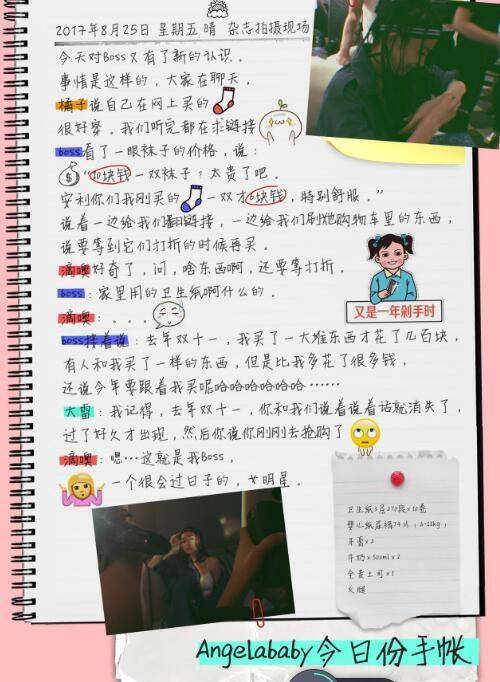 2017年8月25日 星期五 晴 杂志拍摄现场
今天对Boss又有了新的认识。
事情是这样的，大家在聊天，
橘子说自己在网上买的
很好穿。我们听完都在求链接
boss看了一眼袜子的价格，说：
“10块钱一双袜子？太贵了吧。
安利你们我刚买的 一双才6块钱，特别舒服。”
说着一边给我们翻链接，一边给我们刷她购物车里的东西，
说要等到它们打折的时候再买。
滴噢好奇了，问，啥东西啊，还要等打折。
boss：家里用的卫生纸啊什么的。
滴噢：。。。。
又是一年剁手时
boss接着说：去年双十一，我买了一大堆东西才花了几百块，
有人和我买了一样的东西，但是比我多花了很多钱，
还说今年要跟着我买呢哈哈哈哈哈哈……
大雷：我记得，去年双十一，你和我们说着说着话就消失了，
过了好久才出现，然后你说你刚刚去抢购了
滴噢：嗯…这就是我Boss，
一个很会过日子的，女明星。
卫生纸3层270段×10卷
婴儿纸尿裤74片（6-11kg）
牙膏×2
牛奶×500ml×2
全麦土司×1
火腿
Angelababy今日份手帐